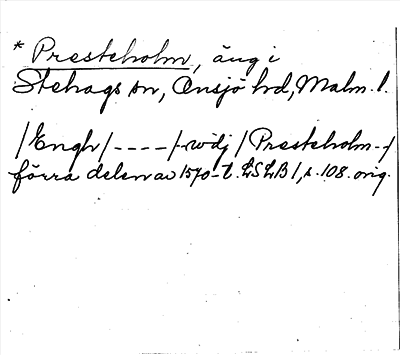 * Presteholm, äng i
Stehags sn, Onsjö hd, Malm. l.
/Engh/ ---- /- widj /Presteholm -/
förra delen av 1570-t. LSLB 1, s. 108. orig.